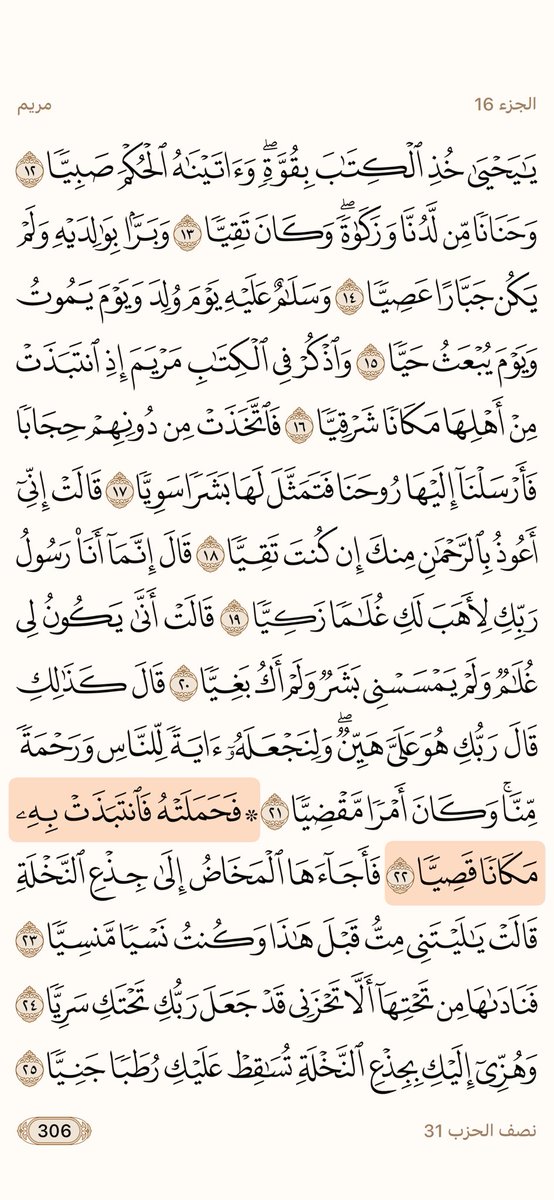 الجزء 16
مريم
يَـٰيَحْيَىٰ خُذِ ٱلْكِتَـٰبَ بِقُوَّةٍۖ وَءَاتَيْنَـٰهُ ٱلْحُكْمَ صَبِيًّا ١٢
وَحَنَانًا مِّن لَّدُنَّا وَزَكَوٰةًۖ وَكَانَ تَقِيًّا ١٣ وَبَرًّۢا بِوَٰلِدَيْهِ وَلَمْ
يَكُن جَبَّارًا عَصِيًّا ١٤ وَسَلَـٰمٌ عَلَيْهِ يَوْمَ وُلِدَ وَيَوْمَ يَمُوتُ
وَيَوْمَ يُبْعَثُ حَيًّا ١٥ وَٱذْكُرْ فِى ٱلْكِتَـٰبِ مَرْيَمَ إِذِ ٱنتَبَذَتْ
مِنْ أَهْلِهَا مَكَانًا شَرْقِيًّا ١٦ فَٱتَّخَذَتْ مِن دُونِهِمْ حِجَابًا
فَأَرْسَلْنَآ إِلَيْهَا رُوحَنَا فَتَمَثَّلَ لَهَا بَشَرًا سَوِيًّا ١٧ قَالَتْ إِنِّىٓ
أَعُوذُ بِٱلرَّحْمَـٰنِ مِنكَ إِن كُنتَ تَقِيًّا ١٨ قَالَ إِنَّمَآ أَنَا۠ رَسُولُ
رَبِّكِ لِأَهَبَ لَكِ غُلَـٰمًا زَكِيًّا ١٩ قَالَتْ أَنَّىٰ يَكُونُ لِى
غُلَـٰمٌ وَلَمْ يَمْسَسْنِى بَشَرٌ وَلَمْ أَكُ بَغِيًّا ٢٠ قَالَ كَذَٰلِكِ
قَالَ رَبُّكِ هُوَ عَلَىَّ هَيِّنٌۖ وَلِنَجْعَلَهُۥٓ ءَايَةً لِّلنَّاسِ وَرَحْمَةً
مِّنَّاۚ وَكَانَ أَمْرًا مَّقْضِيًّا ٢١ ۞ فَحَمَلَتْهُ فَٱنتَبَذَتْ بِهِۦ
مَكَانًا قَصِيًّا ٢٢ فَأَجَآءَهَا ٱلْمَخَاضُ إِلَىٰ جِذْعِ ٱلنَّخْلَةِ
قَالَتْ يَـٰلَيْتَنِى مِتُّ قَبْلَ هَـٰذَا وَكُنتُ نَسْيًا مَّنسِيًّا ٢٣
فَنَادَىٰهَا مِن تَحْتِهَآ أَلَّا تَحْزَنِى قَدْ جَعَلَ رَبُّكِ تَحْتَكِ سَرِيًّا ٢٤
وَهُزِّىٓ إِلَيْكِ بِجِذْعِ ٱلنَّخْلَةِ تُسَـٰقِطْ عَلَيْكِ رُطَبًا جَنِيًّا ٢٥
نصف الحزب 31
306